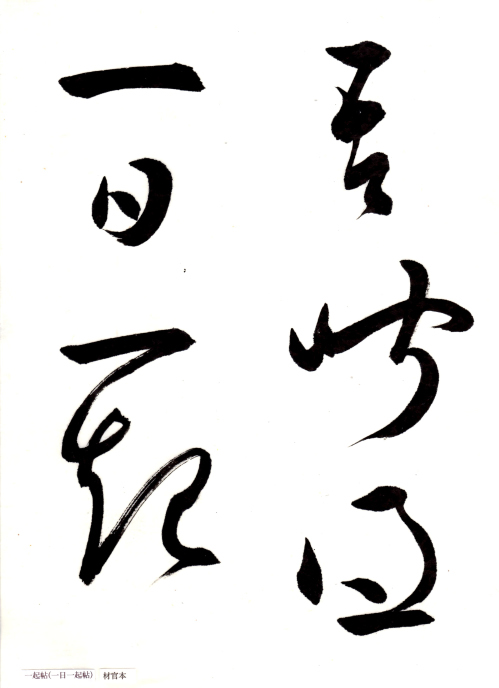 吾昨得
一日一起
一起帖(一日一起帖) 材官本